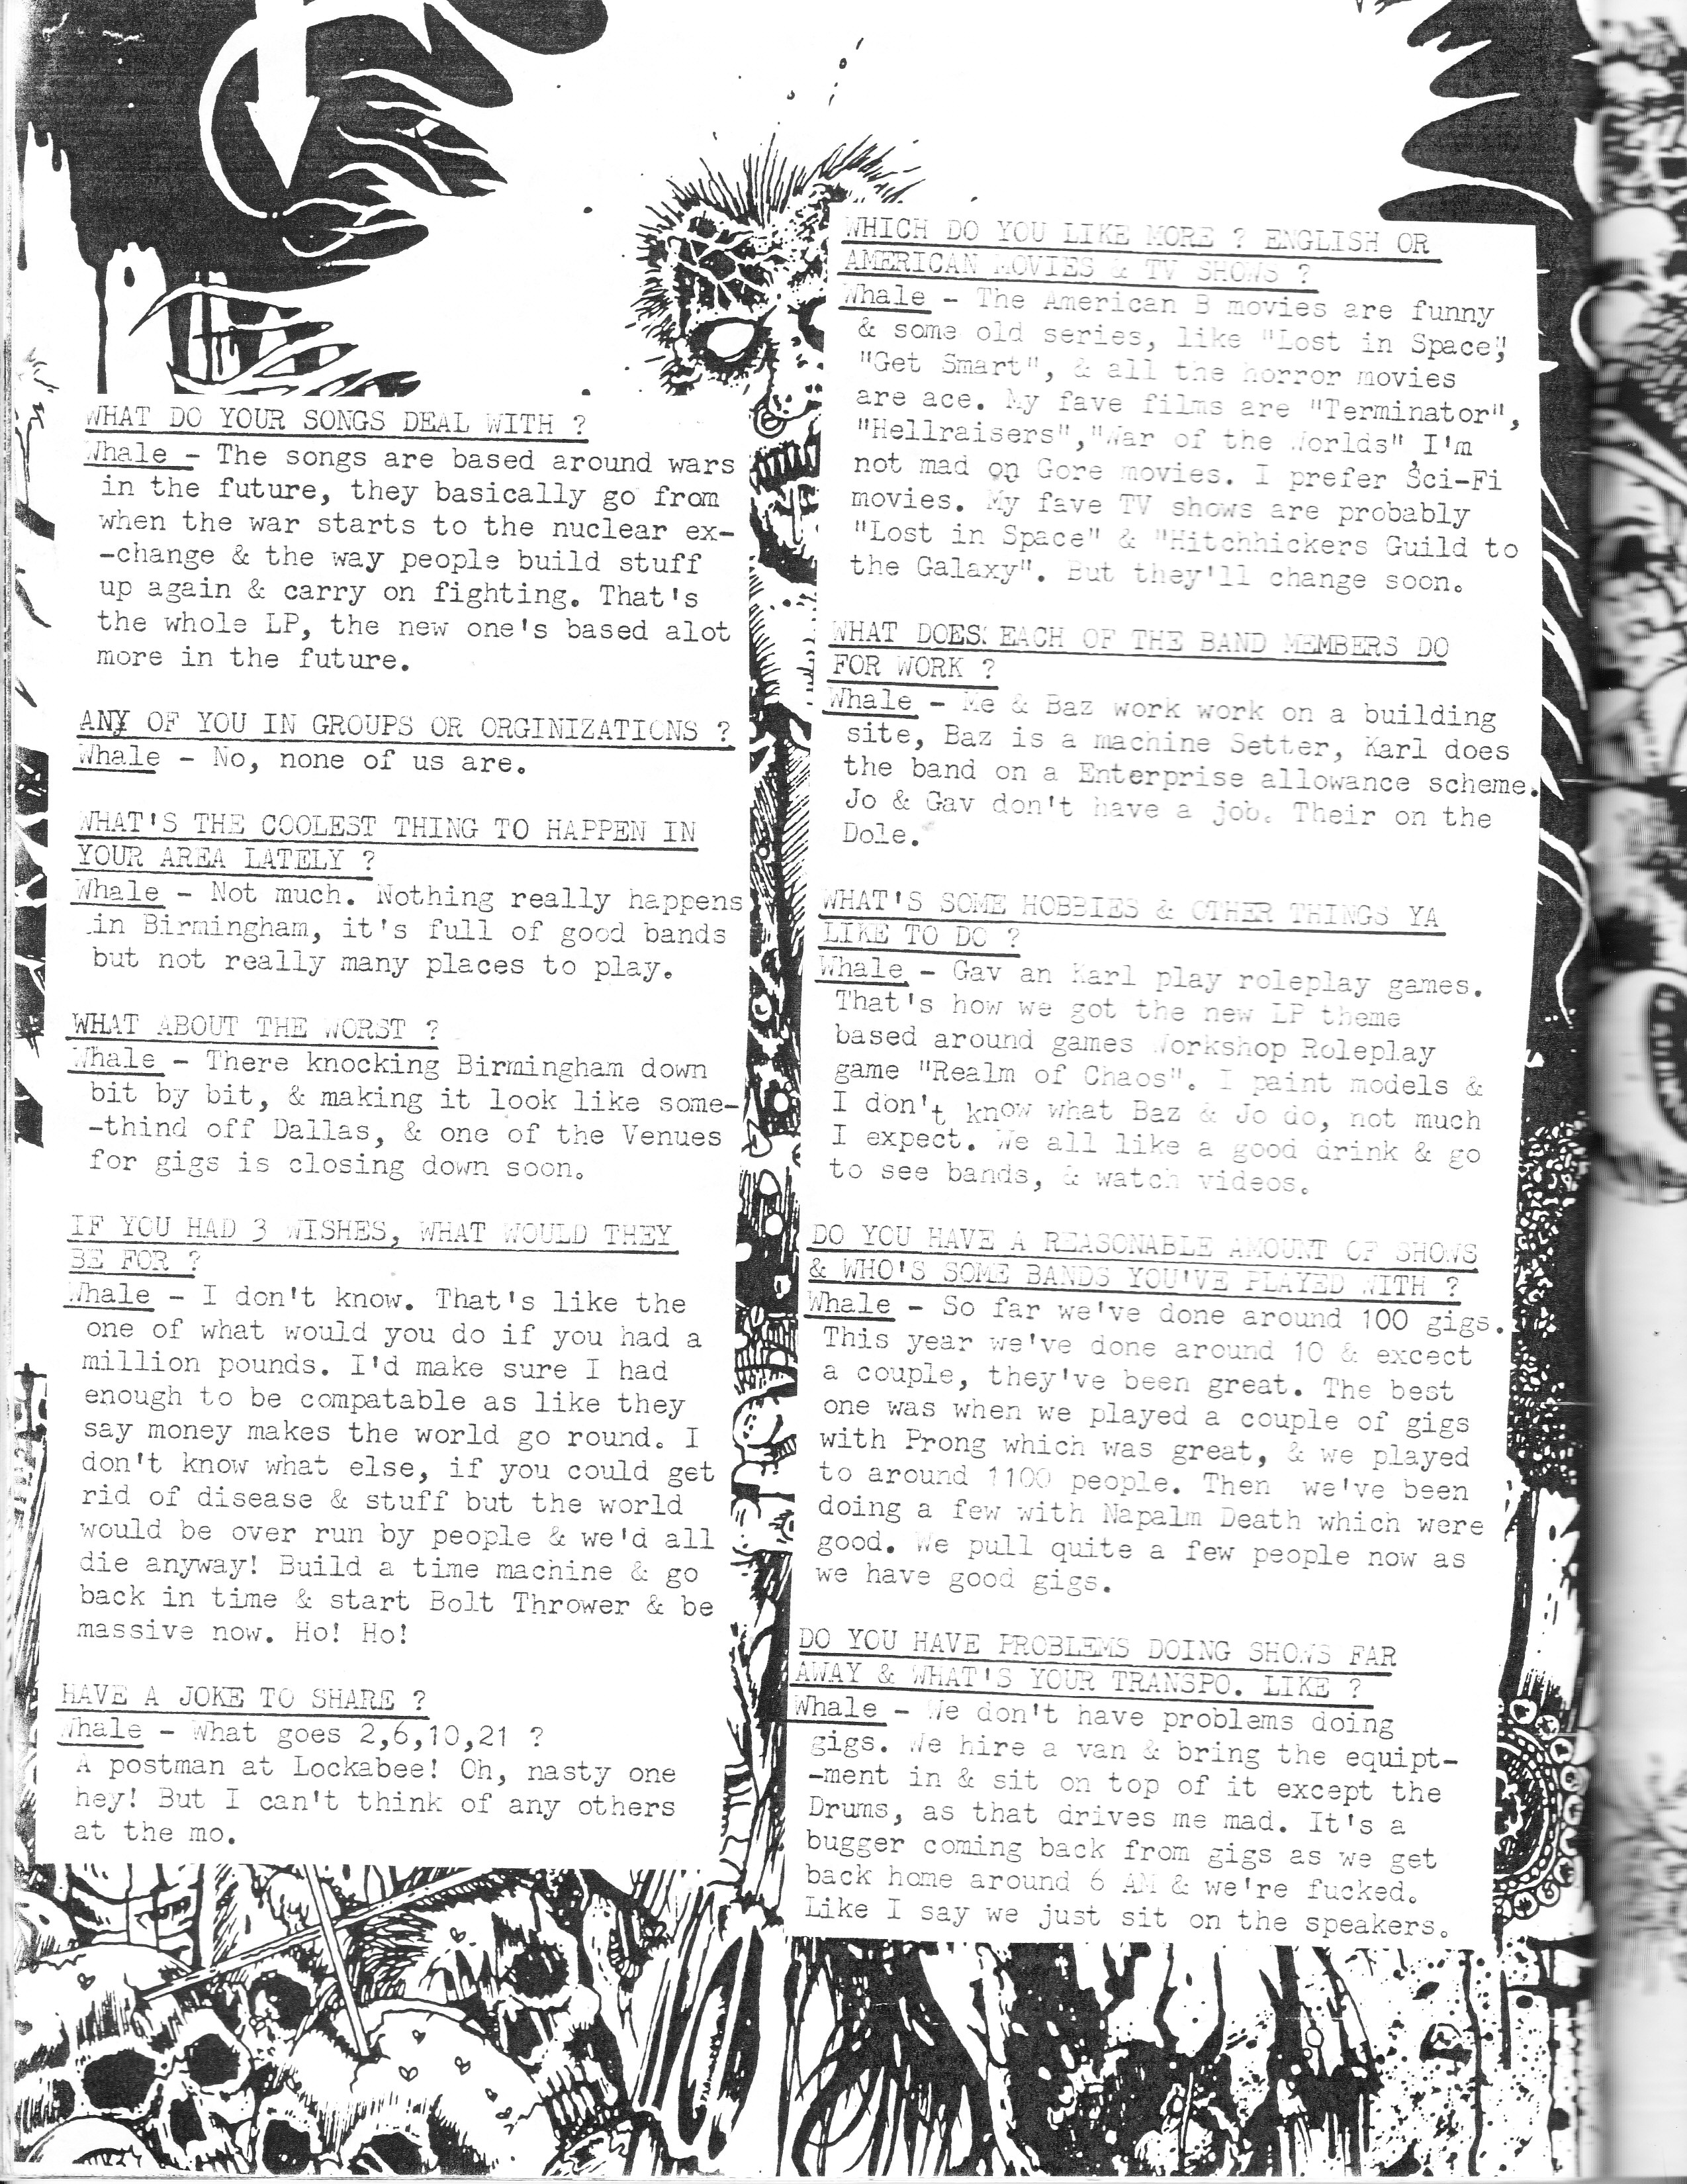 WHAT DO YOUR SONGS DEAL WITH ?
Whale - The songs are based around wars
in the future, they basically go from
when the war starts to the nuclear ex-
-change & the way people build stuff
up again & carry on fighting. That's
the whole LP, the new one's based alot
more in the future.
ANY OF YOU IN GROUPS OR ORGINIZATIONS ?
Whale - No, none of us are.
WHAT'S THE COOLEST THING TO HAPPEN IN
YOUR AREA LATELY ?
Whale - Not much. Nothing really happens
in Birmingham, it's full of good bands
but not really many places to play.
WHAT ABOUT THE WORST ?
Whale - There knocking Birmingham down
bit by bit, & making it look like some-
-thind off Dallas, & one of the Venues
for gigs is closing down soon.
IF YOU HAD 3 WISHES, WHAT WOULD THEY
BE FOR ?
Whale - I don't know. That's like the
one of what would you do if you had a
million pounds. I'd make sure I had
enough to be compatable as like they
say money makes the world go round. I
don't know what else, if you could get
rid of disease & stuff but the world
would be over run by people & we'd all
die anyway! Build a time machine & go
back in time & start Bolt Thrower & be
massive now. Ho! Ho!
HAVE A JOKE TO SHARE ?
Whale - What goes 2,6,10,21 ?
A postman at Lockabee! Oh, nasty one
hey! But I can't think of any others
at the mo.
WHICH DO YOU LIKE MORE ? ENGLISH OR
AMERICAN MOVIES & TV SHOWS ?
Whale - The American B movies are funny
& some old series, like "Lost in Space",
"Get Smart", & all the horror movies
are ace. My fave films are "Terminator",
"Hellraisers","War of the Worlds", I'm
not mad on Gore movies. I prefer Sci-Fi
movies. My fave TV shows are probably
"Lost in Space" & "Hitchhickers Guild to
the Galaxy". But they'll change soon.
WHAT DOES EACH OF THE BAND MEMBERS DO
FOR WORK ?
Whale - Me & Baz work work on a building
site, Baz is a machine Setter, Karl does
the band on a Enterprise allowance scheme.
Jo & Gav don't have a job. Their on the
Dole.
WHAT'S SOME HOBBIES & OTHER THINGS YA
LIKE TO DO ?
Whale - Gav an Karl play roleplay games.
That's how we got the new LP theme
based around games Workshop Roleplay
game "Realm of Chaos". I paint models &
I don't know what Baz & Jo do, not much
I expect. We all like a good drink & go
to see bands, & watch videos.
DO YOU HAVE A REASONABLE AMOUNT OF SHOWS
& WHO'S SOME BANDS YOU'VE PLAYED WITH ?
Whale - So far we've done around 100 gigs.
This year we've done around 10 & excect
a couple, they've been great. The best
one was when we played a couple of gigs
with Prong which was great, & we played
to around 1100 people. Then we've been
doing a few with Napalm Death which were
good. We pull quite a few people now as
we have good gigs.
DO YOU HAVE PROBLEMS DOING SHOWS FAR
AWAY & WHAT'S YOUR TRANSPO. LIKE ?
Whale - We don't have problems doing
gigs. We hire a van & bring the equipt-
-ment in & sit on top of it except the
Drums, as that drives me mad. It's a
bugger coming back from gigs as we get
back home around 6 AM & we're fucked.
Like I say we just sit on the speakers.